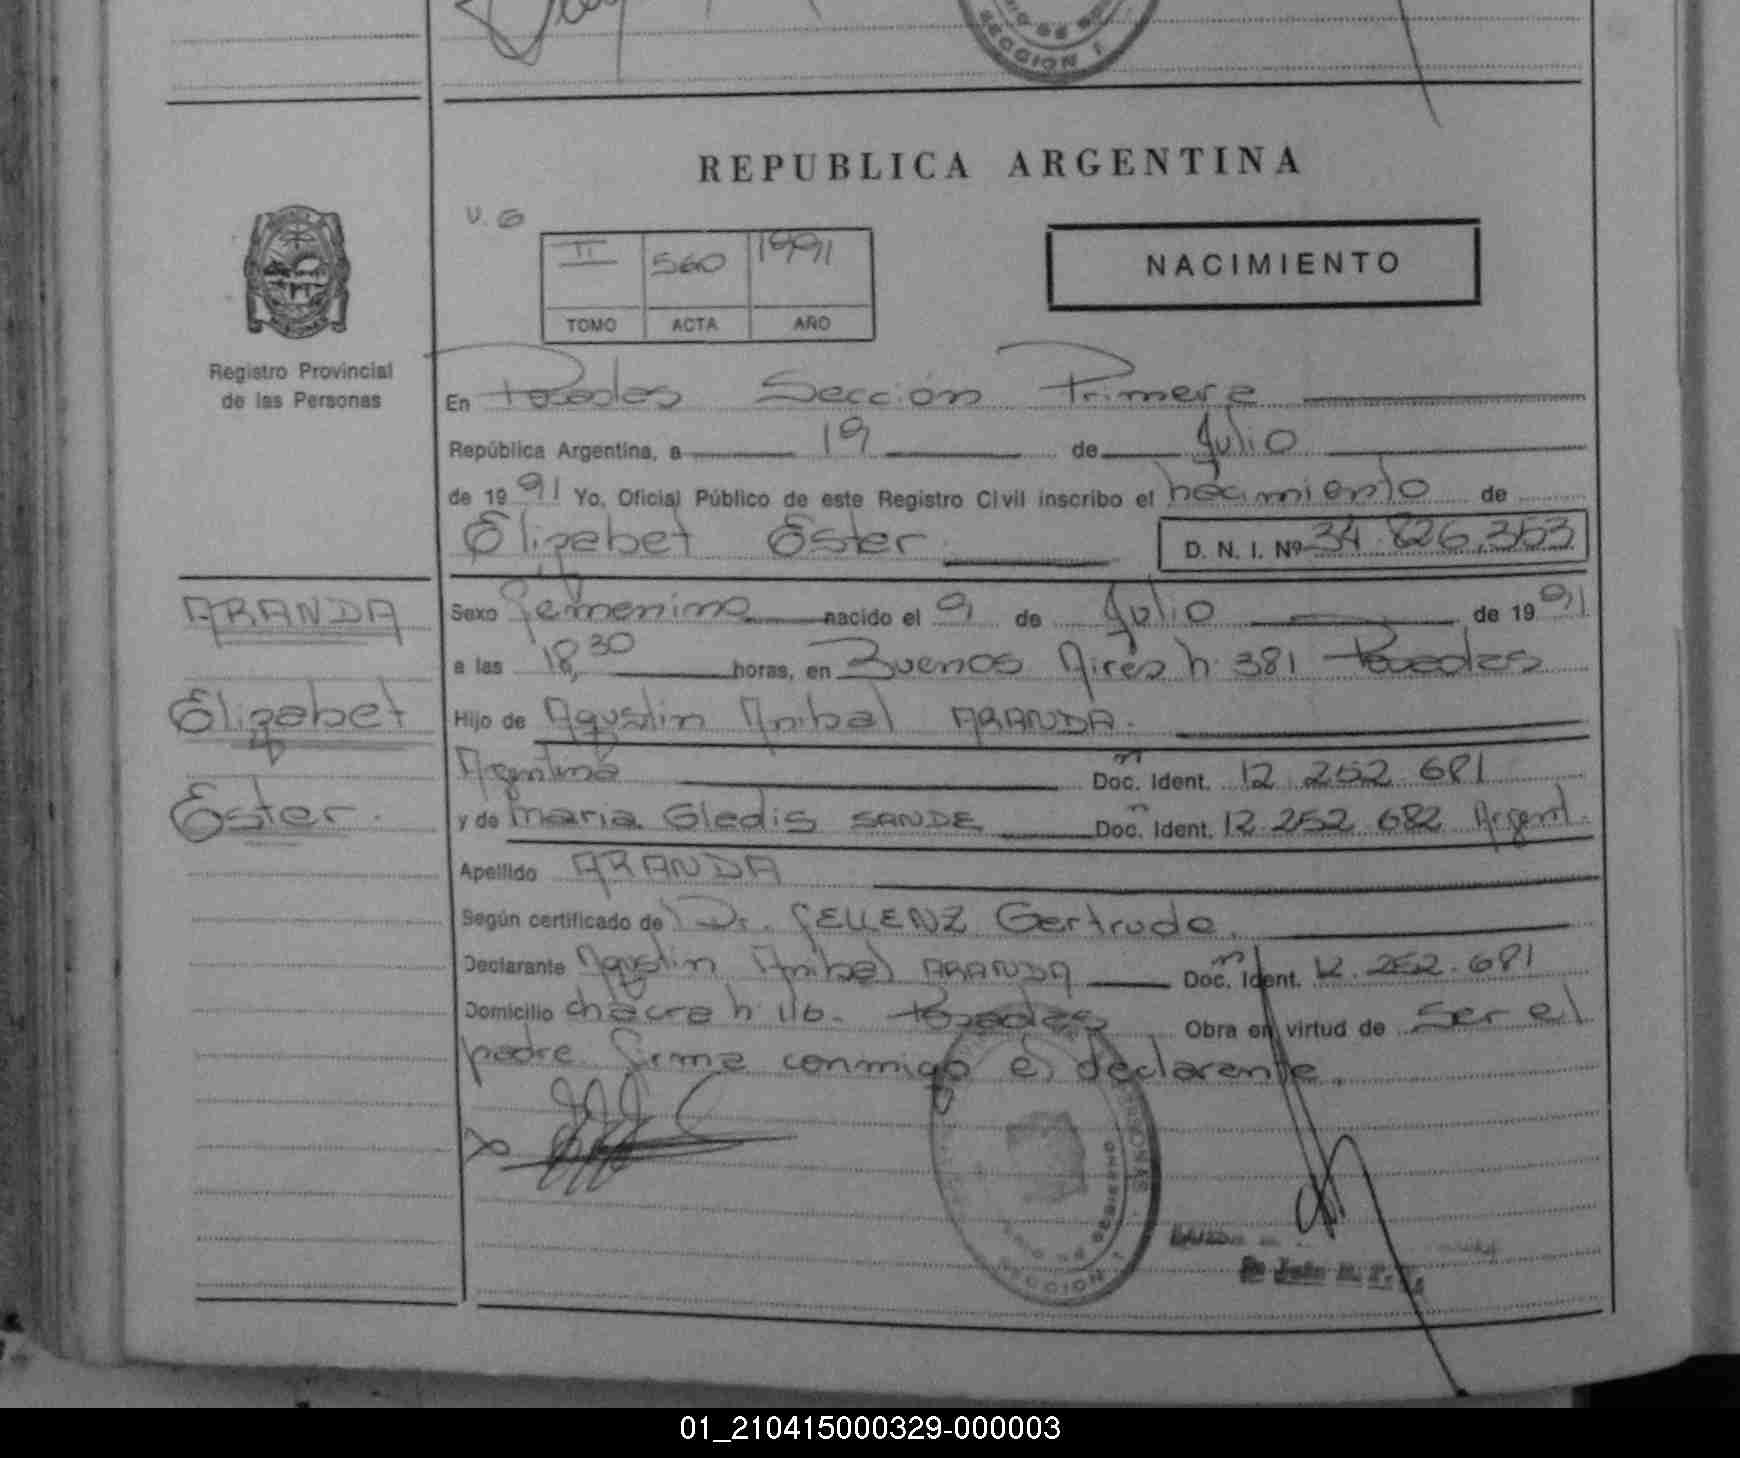 SECCION 1
REPUBLICA ARGENTINA
V. G
II 560 1991
TOMO ACTA AÑO
NACIMIENTO
Registro Provincial
de las Personas
En Posadas Sección Primera
República Argentina, a 19 de Julio
de 1991 Yo, Oficial Público de este Registro Civil inscribo el nacimiento de
Elizabet Ester D. N. I. Nº 34.826.353
ARANDA
Elizabet
Ester.
Sexo femenino nacido el 9 de Julio de 1991
a las 18,30 horas, en Buenos Aires n: 381 Posadas
Hijo de Agustin Anibal ARANDA.
Argentina Doc. Ident. 12.252.681
y de Maria Gladis SANDE Doc. Ident. 12.252.682 Argent.
Apellido ARANDA
Según certificado de Dr. GELLENZ Gertrude.
Declarante Agustin Anibal ARANDA Doc. Ident. 12.252.681
Domicilio chacra n: 116. Posadas Obra en virtud de ser el
padre. firma conmigo el declarante.
SECCION 1
01_210415000329-000003